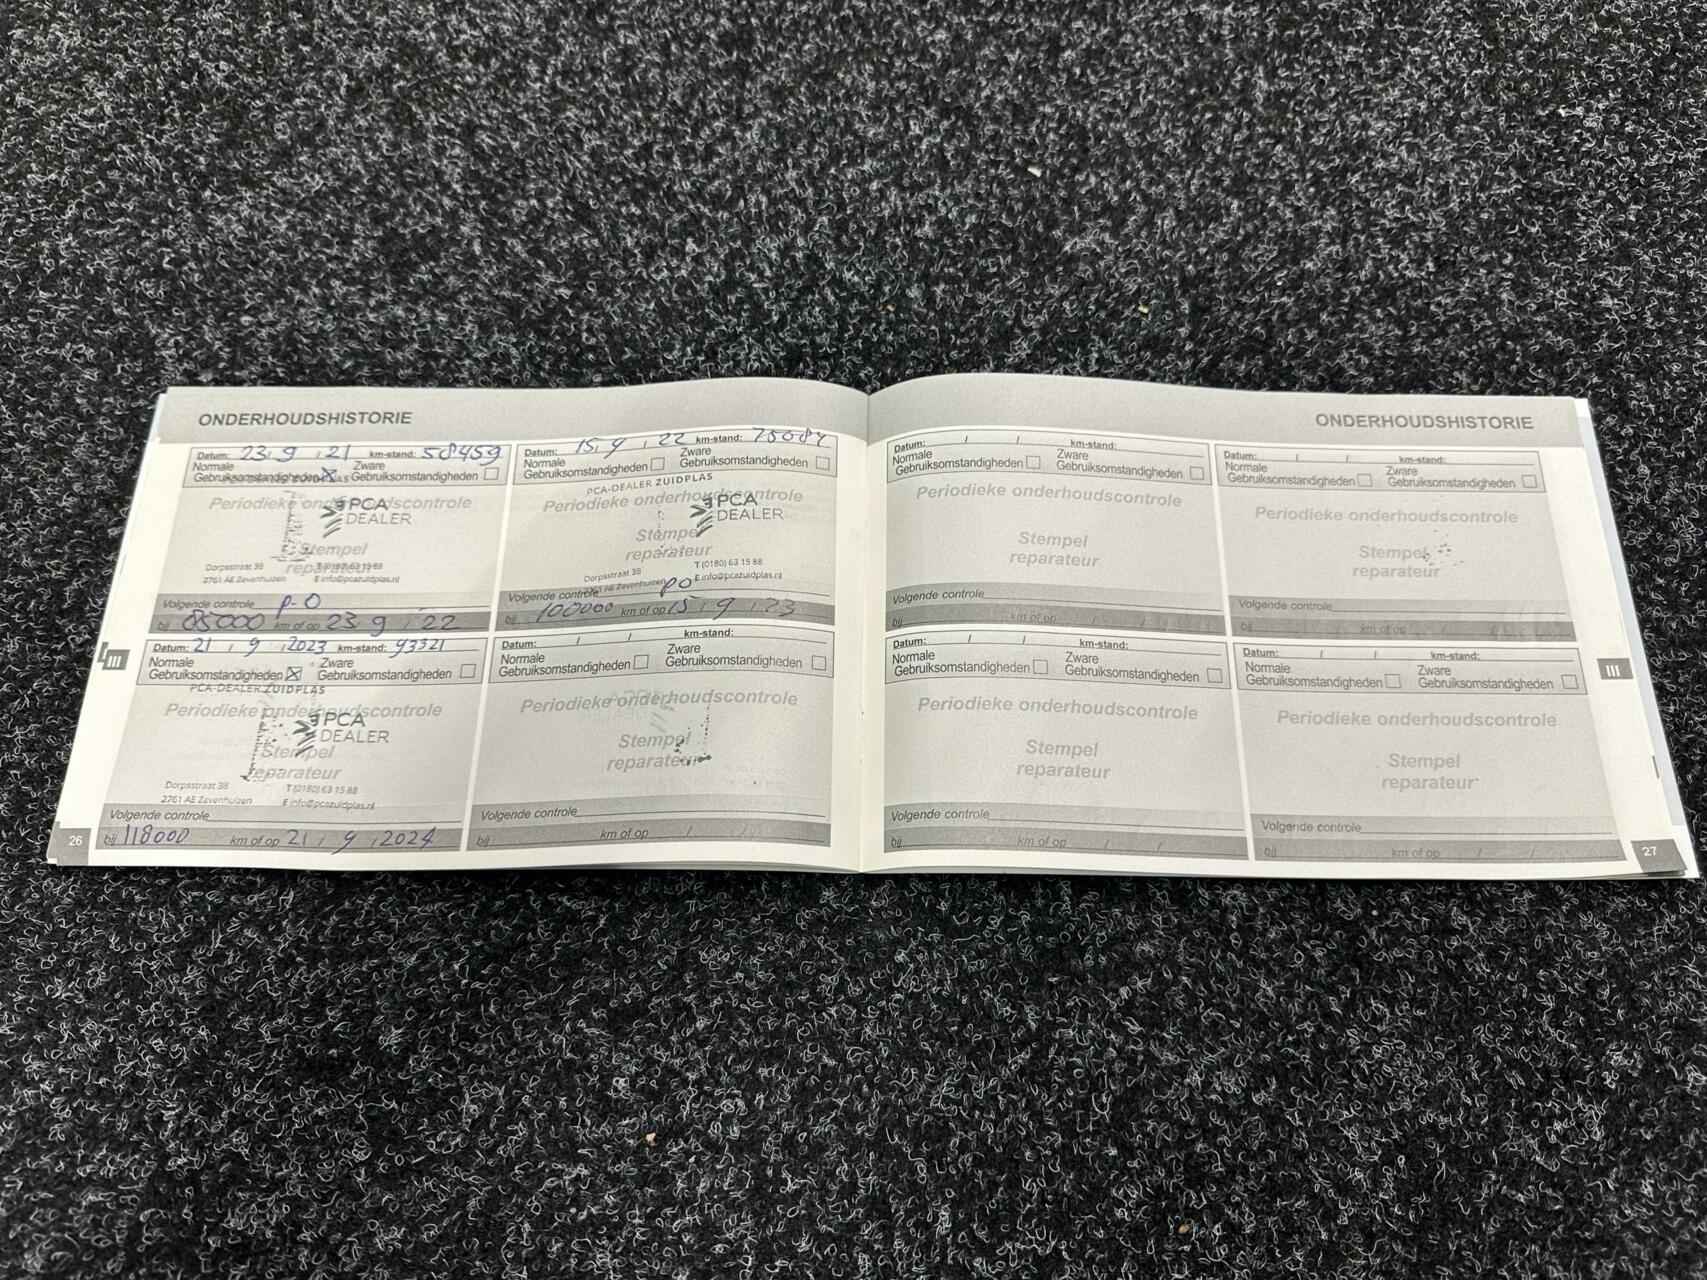 ONDERHOUDSHISTORIE
Datum: 23 . 9 . 21 km-stand: 58459
Normale Gebruiksomstandigheden Zware Gebruiksomstandigheden
Periodieke onderhoudscontrole
PCA DEALER
Stempel reparateur
Dorpsstraat 38 T (0180) 63 15 88
2761 AE Zevenhuizen E info@pcazuidplas.nl
Volgende controle P-O
bij 85000 km of op 23 9 / 22
Datum: 15 . 9 . 22 km-stand:
Normale Gebruiksomstandigheden Zware Gebruiksomstandigheden
PCA-DEALER ZUIDPLAS
Periodieke onderhoudscontrole
PCA DEALER
Stempel reparateur
Dorpsstraat 38 T (0180) 63 15 88
2761 AE Zevenhuizen E info@pcazuidplas.nl
Volgende controle PO
bij 100000 km of op 15 / 9 / 23
Datum: 21 . 9 . 2023 km-stand: 93321
Normale Gebruiksomstandigheden Zware Gebruiksomstandigheden
PCA-DEALER ZUIDPLAS
Periodieke onderhoudscontrole
PCA DEALER
Stempel reparateur
Dorpsstraat 38 T (0180) 63 15 88
2761 AE Zevenhuizen E info@pcazuidplas.nl
Volgende controle
bij 118000 km of op 21 / 9 / 2024
Datum: / / km-stand:
Normale Gebruiksomstandigheden Zware Gebruiksomstandigheden
Periodieke onderhoudscontrole
Stempel
reparateur
Volgende controle
bij km of op / /
III
26
ONDERHOUDSHISTORIE
Datum: / / km-stand:
Normale Gebruiksomstandigheden Zware Gebruiksomstandigheden
Periodieke onderhoudscontrole
Stempel
reparateur
Volgende controle
bij km of op / /
Datum: / / km-stand:
Normale Gebruiksomstandigheden Zware Gebruiksomstandigheden
Periodieke onderhoudscontrole
Stempel
reparateur
Volgende controle
bij km of op / /
Datum: / / km-stand:
Normale Gebruiksomstandigheden Zware Gebruiksomstandigheden
Periodieke onderhoudscontrole
Stempel
reparateur
Volgende controle
bij km of op / /
Datum: / / km-stand:
Normale Gebruiksomstandigheden Zware Gebruiksomstandigheden
Periodieke onderhoudscontrole
Stempel
reparateur
Volgende controle
bij km of op / /
III
27